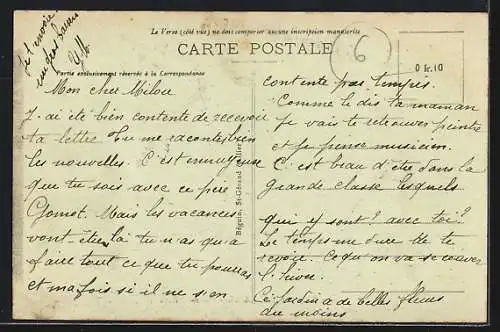 Le Verso (côté vue) ne doit comporter aucune inscription manuscrite
CARTE POSTALE
Partie exclusivement réservée à la Correspondance
6
0 fr. 10
Je t'envoie
un des
Mon cher Milou
J'ai été bien contente de recevoir
ta lettre Tu me racontes bien
les nouvelles. C'est ennuyeux
que tu sois avec ce père
Mais les vacances
vont être là tu n'as qu'a
faire tout ce que tu pourras
et ma fois si il ne s'en
contente pas tempis.
Comme le dis ta maman
Je vais te retrouver peintre
et Je pense musicien.
C'est beau d'être dans la
grande classe lesquels
qui y sont? avec toi?
Le temps me dure de te
revoir. Ce qu'on va se
l'hiver
Ce Jardin a de belles fleurs
du moins
Béguin, St-Gérand